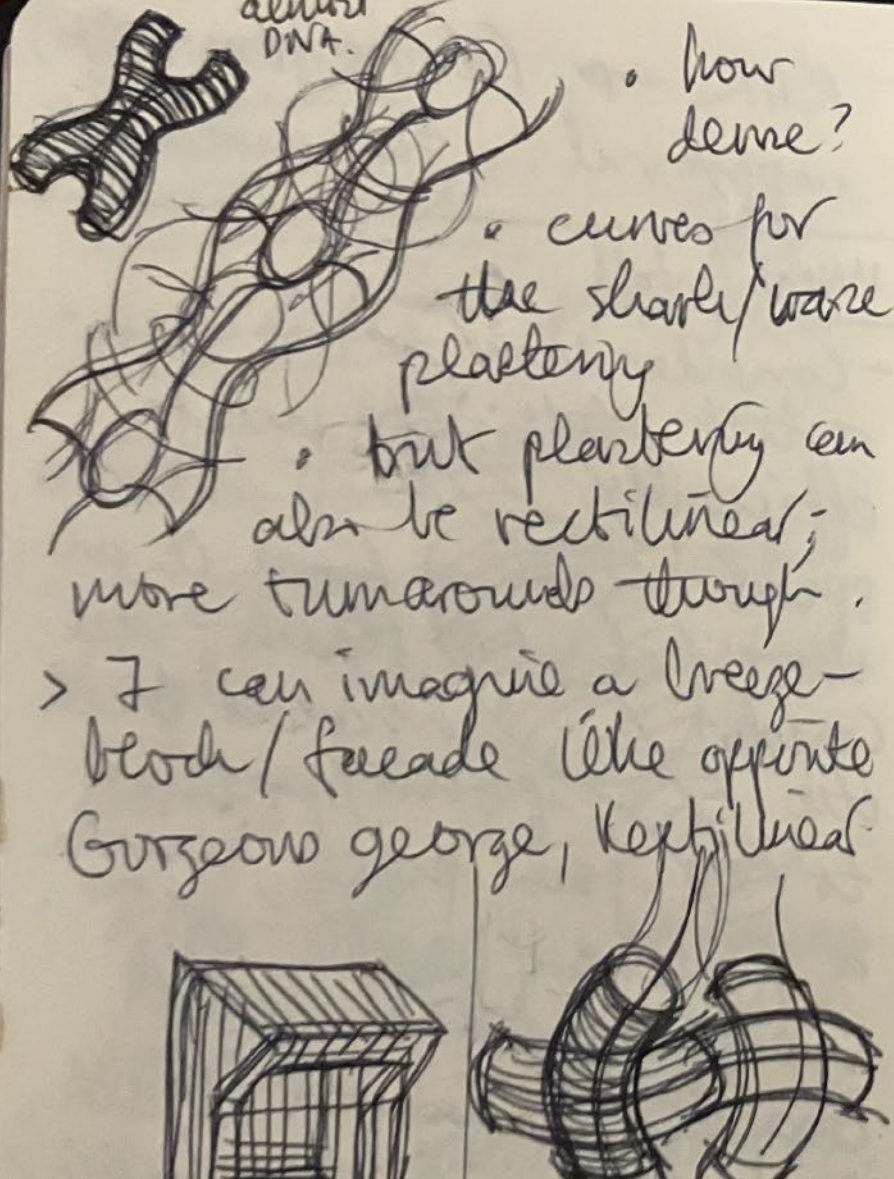 almost
DNA.
• how
dense?
• curves for
the shark/ware
plastering
• but plastering can
also be rectilinear;
more turnarounds though.
> I can imagine a breeze-
block/facade like opposite
Gorgeous george, Rectilinear